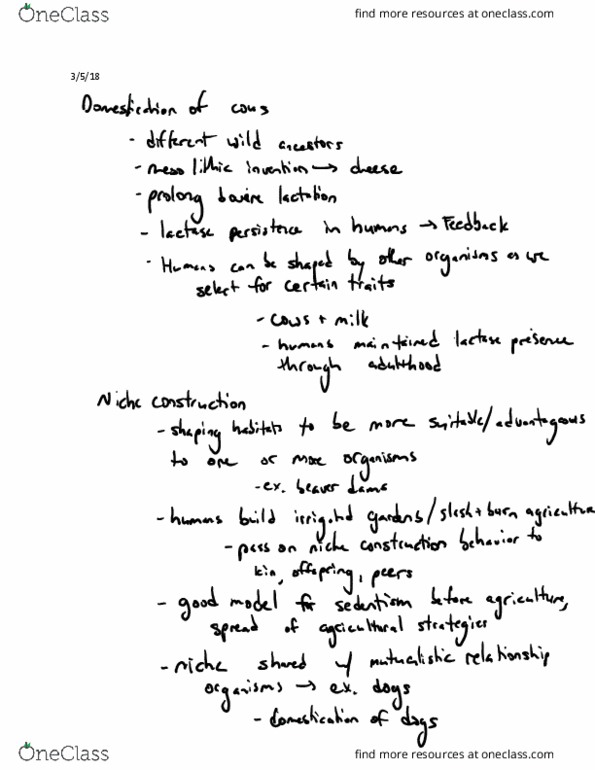 OneClass
find more resources at oneclass.com
3/5/18
Domestication of cows
- different wild ancestors
- mesolithic invention → cheese
- prolong bovine lactation
- lactase persistence in humans → Feedback
- Humans can be shaped by other organisms as we
select for certain traits
- cows + milk
- humans maintained lactase presence
through adulthood
Niche construction
- shaping habitats to be more suitable/advantageous
to one or more organisms
- ex. beaver dams
- humans build irrigated gardens/slash + burn agriculture
- pass on niche construction behavior to
kin, offspring, peers
- good model for sedentism before agriculture,
spread of agricultural strategies
- niche shared w/ mutualistic relationship
organisms → ex. dogs
- domestication of dogs
OneClass
find more resources at oneclass.com